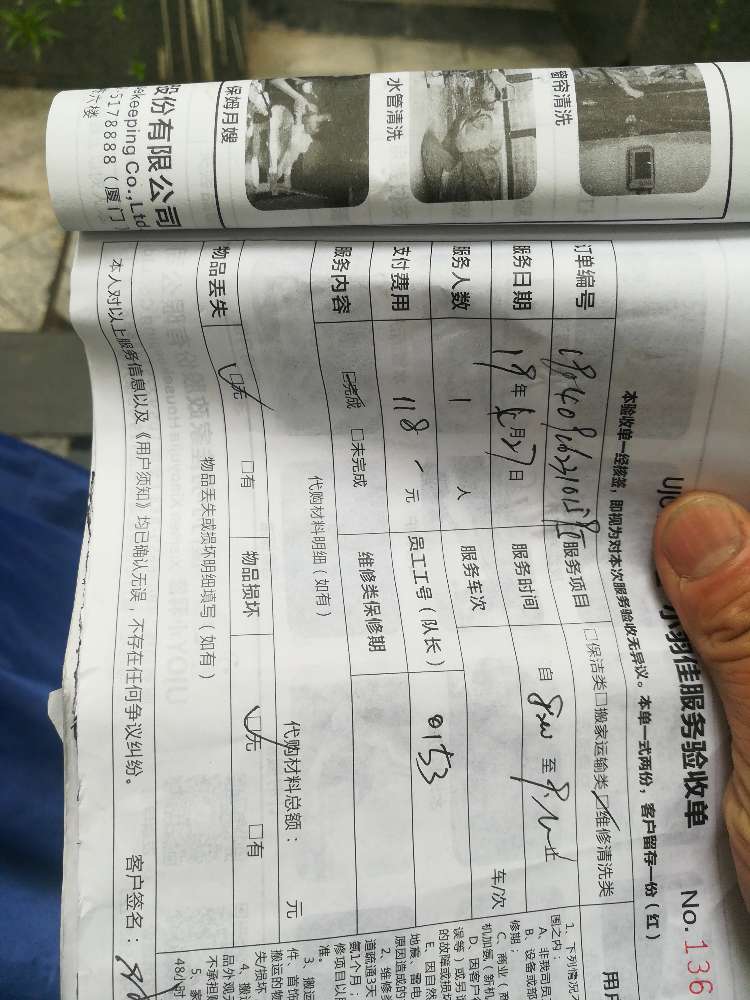 股份有限公司
ekeeping Co.,Ltd
5178888（厦门
六楼
保姆月嫂
水管清洗
窗帘清洗
小羽佳服务验收单
No.136
本验收单一经核签，即视为对本次服务验收无异议。本单一式两份，客户留存一份（红）
订单编号
服务项目
□保洁类□搬家运输类□维修清洗类
服务日期
19年 月27日
服务时间
自 至 止
服务人数
1 人
服务车次
车/次
支付费用
118 元
员工工号（队长）
0153
服务内容
□完成 □未完成
维修类保修期
代购材料明细（如有）
代购材料总额： 元
物品丢失
□无 □有
物品损坏
□无 □有
物品丢失或损坏明细填写（如有）
本人对以上服务信息以及《用户须知》均已确认无误，不存在任何争议纠纷。
客户签名：
用户
1、下列情况
围之内：
A、非我司
B、设备或部
修期；
C、商业（
机加氨（新机
D、因客户
误等）或另
的故障或损坏
E、因自然
地震、雷电
原因造成的
2、维修
道疏通3天
氨1个月；
修项目以
准。
3、搬
件、首饰
搬运的物
失/损坏
4、搬
品外观
不承担
5、家
48小时